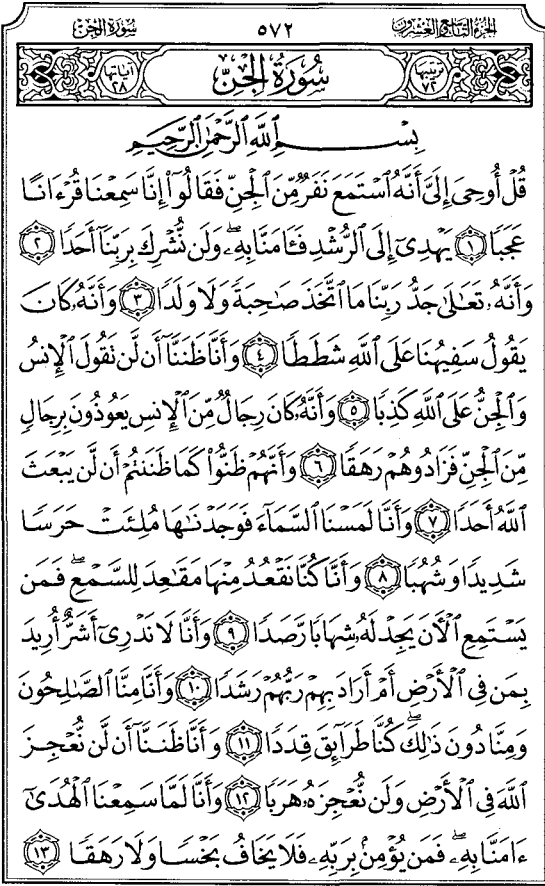 الجزء التاسع والعشرون ٥٧٢ سورة الجن
ترتيبها ٧٢ سُورَةُ الجِنّ آياتها ٢٨
بِسْمِ ٱللَّهِ ٱلرَّحْمَٰنِ ٱلرَّحِيمِ
قُلْ أُوحِىَ إِلَىَّ أَنَّهُ ٱسْتَمَعَ نَفَرٌ مِّنَ ٱلْجِنِّ فَقَالُوٓا۟ إِنَّا سَمِعْنَا قُرْءَانًا
عَجَبًا ١ يَهْدِىٓ إِلَى ٱلرُّشْدِ فَـَٔامَنَّا بِهِۦ ۖ وَلَن نُّشْرِكَ بِرَبِّنَآ أَحَدًا ٢
وَأَنَّهُۥ تَعَٰلَىٰ جَدُّ رَبِّنَا مَا ٱتَّخَذَ صَٰحِبَةً وَلَا وَلَدًا ٣ وَأَنَّهُۥ كَانَ
يَقُولُ سَفِيهُنَا عَلَى ٱللَّهِ شَطَطًا ٤ وَأَنَّا ظَنَنَّآ أَن لَّن تَقُولَ ٱلْإِنسُ
وَٱلْجِنُّ عَلَى ٱللَّهِ كَذِبًا ٥ وَأَنَّهُۥ كَانَ رِجَالٌ مِّنَ ٱلْإِنسِ يَعُوذُونَ بِرِجَالٍ
مِّنَ ٱلْجِنِّ فَزَادُوهُمْ رَهَقًا ٦ وَأَنَّهُمْ ظَنُّوا۟ كَمَا ظَنَنتُمْ أَن لَّن يَبْعَثَ
ٱللَّهُ أَحَدًا ٧ وَأَنَّا لَمَسْنَا ٱلسَّمَآءَ فَوَجَدْنَٰهَا مُلِئَتْ حَرَسًا
شَدِيدًا وَشُهُبًا ٨ وَأَنَّا كُنَّا نَقْعُدُ مِنْهَا مَقَٰعِدَ لِلسَّمْعِ ۖ فَمَن
يَسْتَمِعِ ٱلْـَٔانَ يَجِدْ لَهُۥ شِهَابًا رَّصَدًا ٩ وَأَنَّا لَا نَدْرِىٓ أَشَرٌّ أُرِيدَ
بِمَن فِى ٱلْأَرْضِ أَمْ أَرَادَ بِهِمْ رَبُّهُمْ رَشَدًا ١٠ وَأَنَّا مِنَّا ٱلصَّٰلِحُونَ
وَمِنَّا دُونَ ذَٰلِكَ ۖ كُنَّا طَرَآئِقَ قِدَدًا ١١ وَأَنَّا ظَنَنَّآ أَن لَّن نُّعْجِزَ
ٱللَّهَ فِى ٱلْأَرْضِ وَلَن نُّعْجِزَهُۥ هَرَبًا ١٢ وَأَنَّا لَمَّا سَمِعْنَا ٱلْهُدَىٰٓ
ءَامَنَّا بِهِۦ ۖ فَمَن يُؤْمِنۢ بِرَبِّهِۦ فَلَا يَخَافُ بَخْسًا وَلَا رَهَقًا ١٣